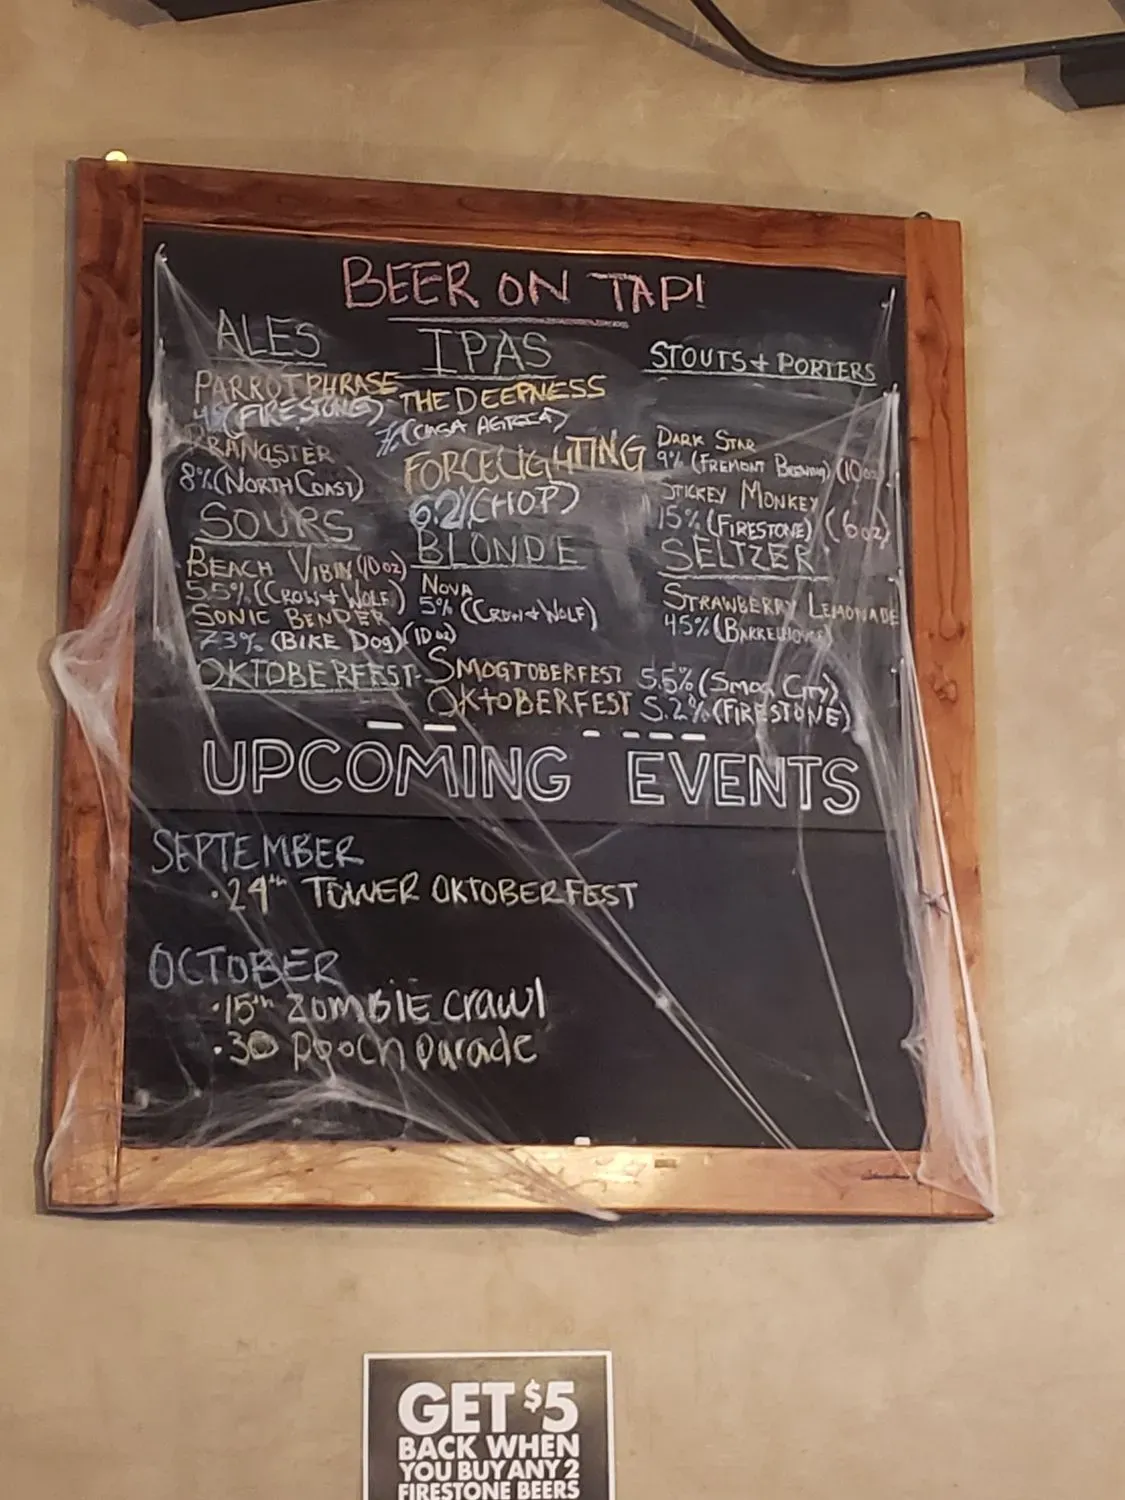 BEER ON TAP!
ALES
PARROTPHRASE
(FIRESTONE)
PRANGSTER
8% (NORTH COAST)
SOURS
BEACH VIBIN (10 oz)
5.5% (CROW + WOLF)
SONIC BENDER
7.3% (BIKE DOG) (10 oz)
IPAS
THE DEEPNESS
7% (CASA AGRIA)
FORCELIGHTING
6.2% (HOP)
BLONDE
NOVA
5% (CROW + WOLF)
STOUTS + PORTERS
DARK STAR
9% (FREMONT BREWING) (10oz)
STICKEY MONKEY
15% (FIRESTONE) (6oz)
SELTZER
STRAWBERRY LEMONADE
45% (BARRELHOUSE)
OKTOBERFEST- SMOGTOBERFEST 5.5% (SMOG CITY)
OKTOBERFEST 5.2% (FIRESTONE)
UPCOMING EVENTS
SEPTEMBER
• 24th TOWER OKTOBERFEST
OCTOBER
• 15th ZOMBIE Crawl
• 30 Pooch Parade
GET $5
BACK WHEN
YOU BUY ANY 2
FIRESTONE BEERS